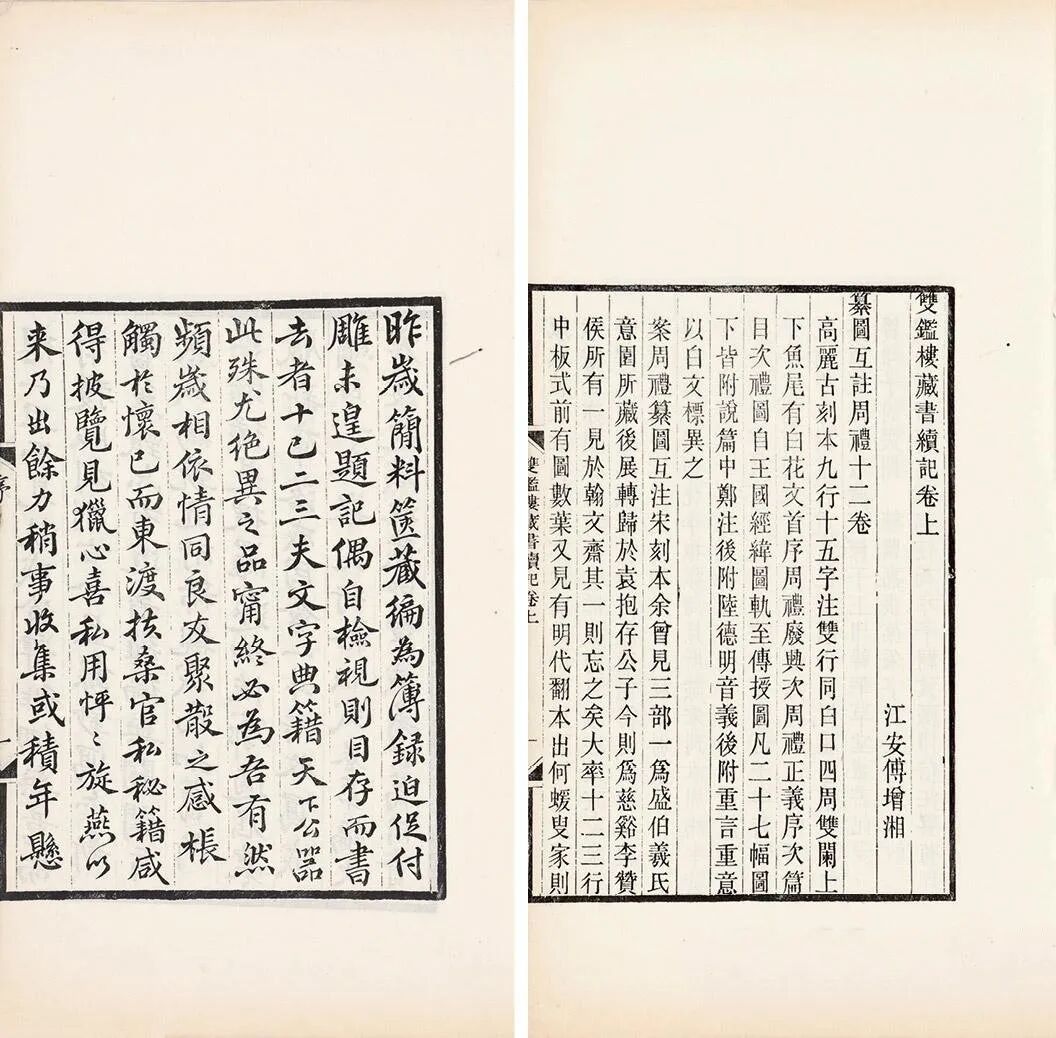 雙鑑樓藏書續記卷上
江安傅增湘
纂圖互註周禮十二卷
高麗古刻本九行十五字注雙行同白口四周雙闌上
下魚尾有白花文首序周禮廢興次周禮正義序次篇
目次禮圖自王國經緯圖軌至傳授圖凡二十七幅圖
下皆附說篇中鄭注後附陸德明音義後附重言重意
以白文標異之
案周禮纂圖互注宋刻本余曾見三部一爲盛伯羲氏
意園所藏後展轉歸於袁抱存公子今則爲慈谿李贊
侯所有一見於翰文齋其一則忘之矣大率十二三行
中板式前有圖數葉又見有明代翻本出何蝯叟家則
雙鑑樓藏書續記卷上
昨歲簡料篋藏編為簿録迫促付
雕未遑題記偶自檢視則目存而書
去者十已二三夫文字典籍天下公器
此殊尤絶異之品甯終必為吾有然
頻歲相依情同良友聚散之感棖
觸於懷已而東渡扶桑官私秘籍咸
得披覽見獵心喜私用怦〻旋燕以
来乃出餘力稍事收集或積年懸
序
一